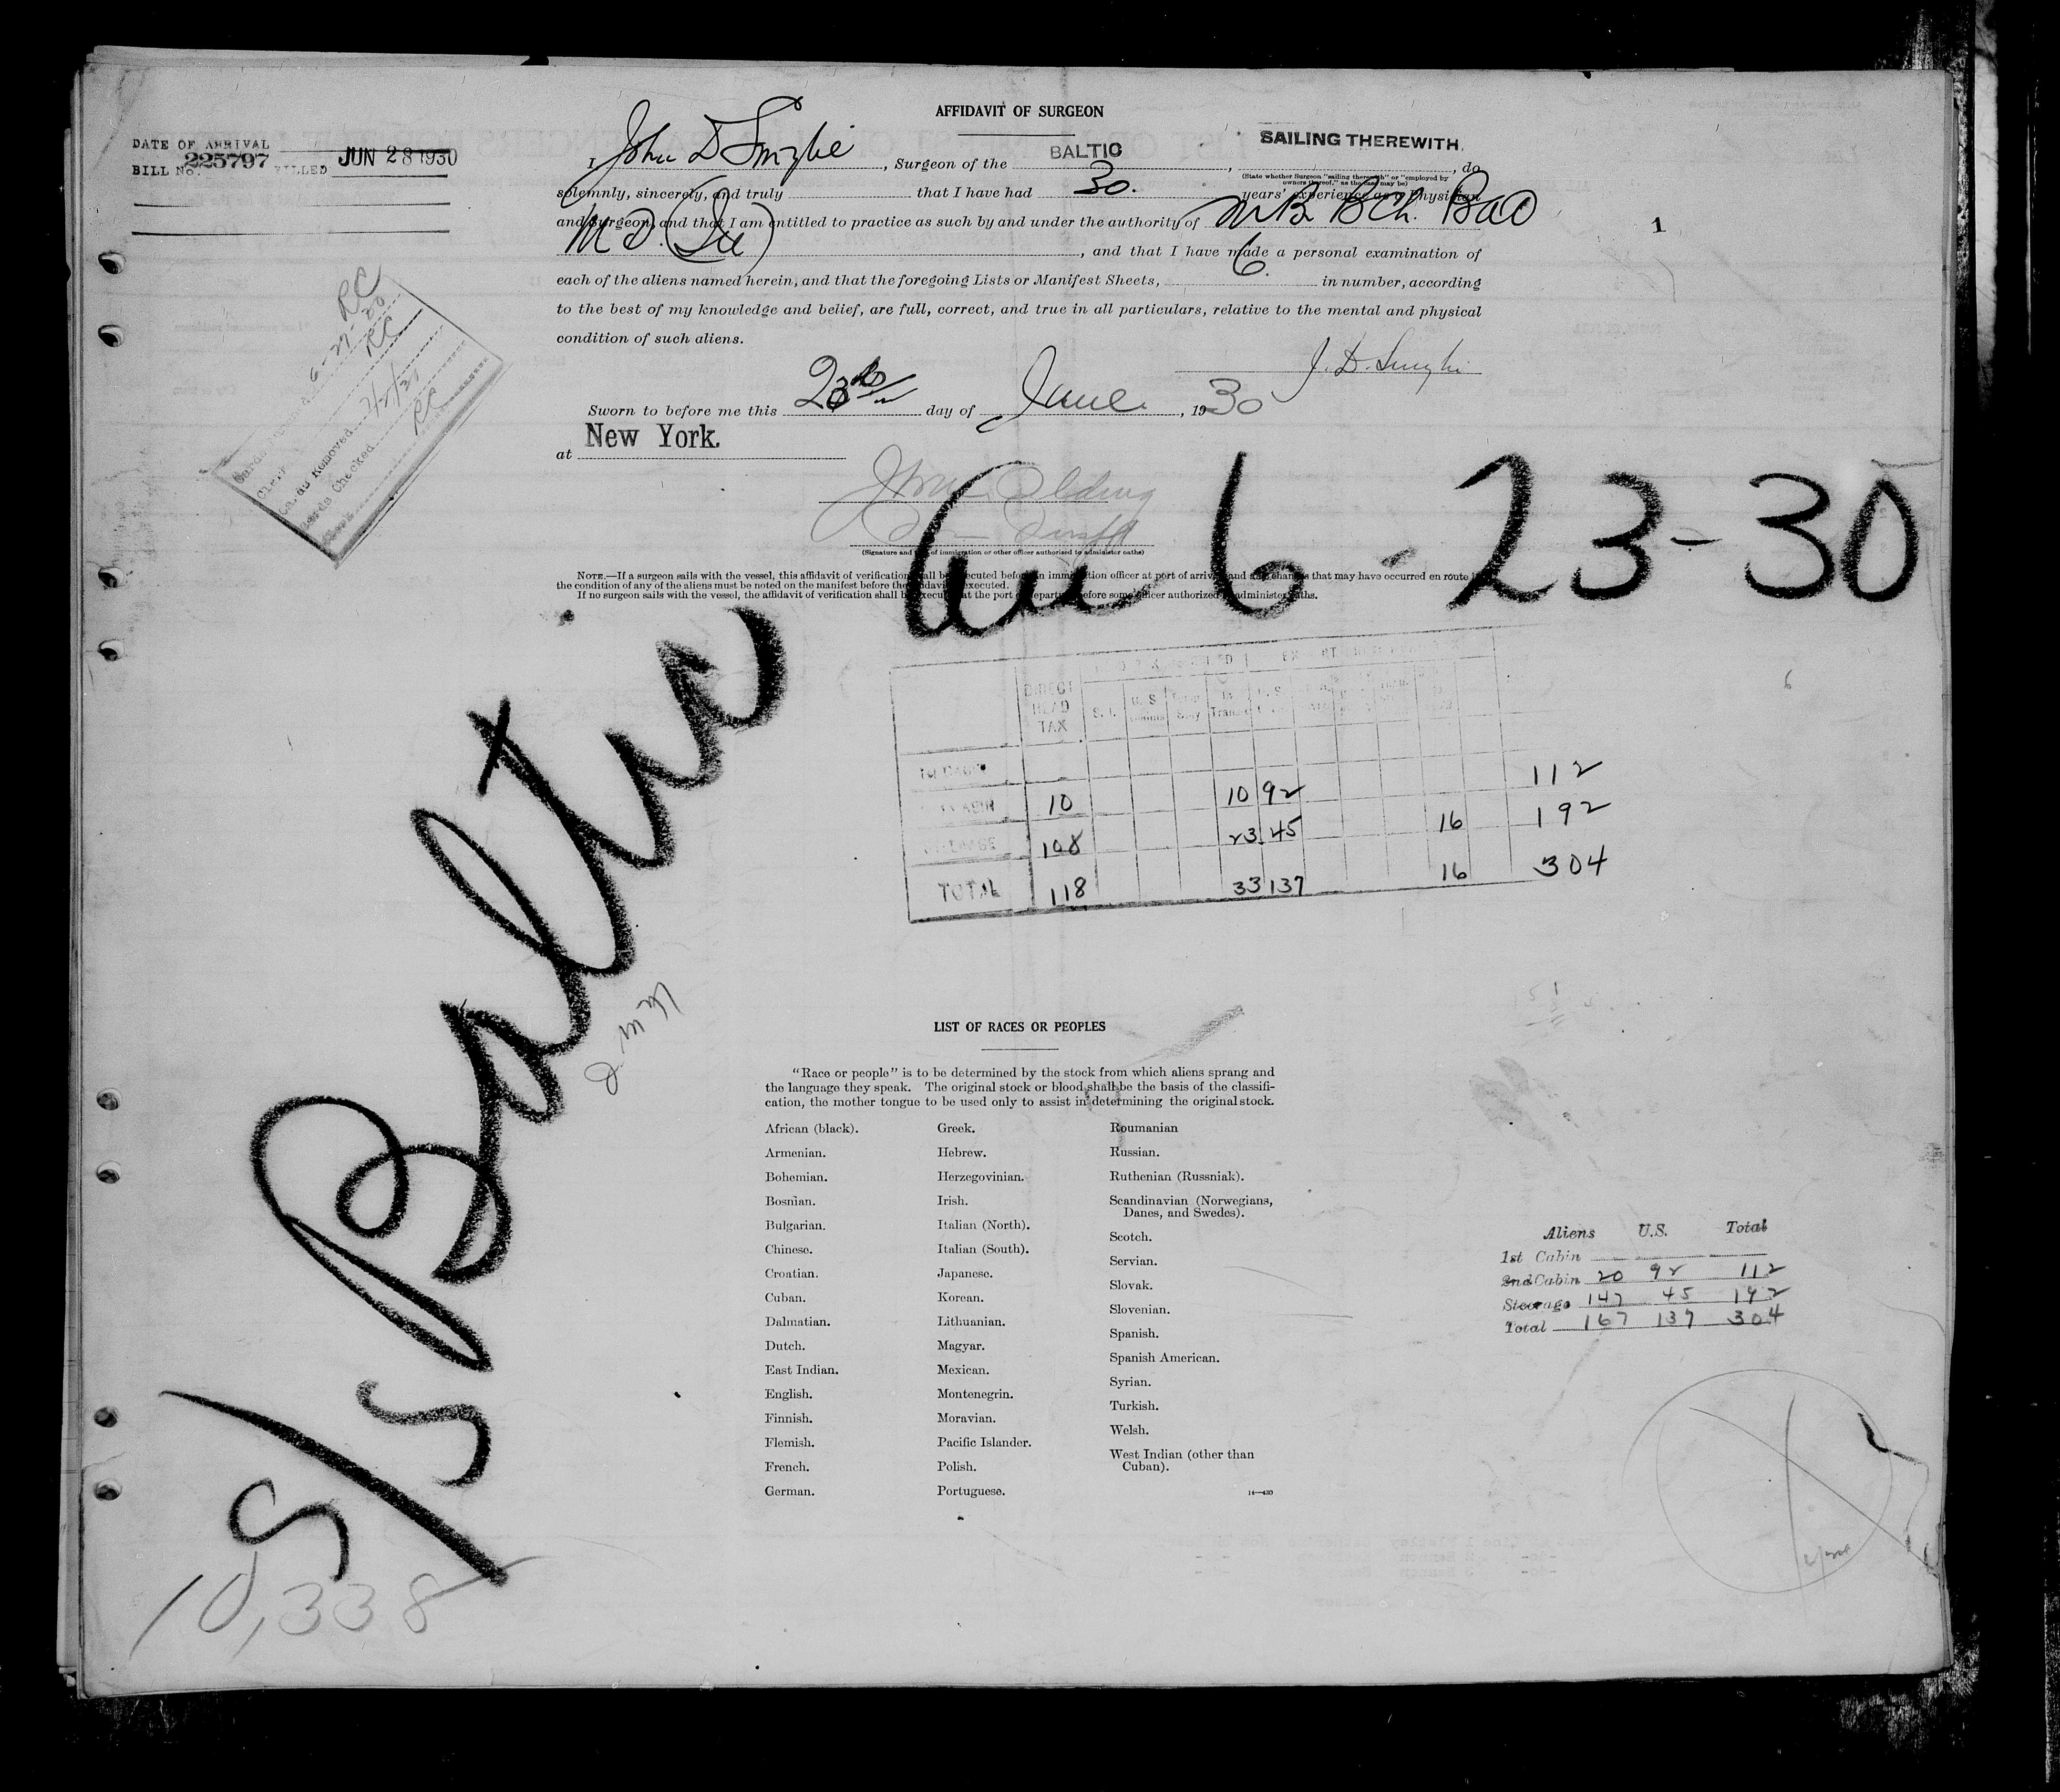 AFFIDAVIT OF SURGEON
DATE OF ARRIVAL
BILL No. 225797 FILLED JUN 28 1930
I, John D , Surgeon of the BALTIC, SAILING THEREWITH, do
(State whether Surgeon "sailing therewith" or "employed by
owners thereof," as the case may be)
solemnly, sincerely, and truly that I have had 30. years' experience as a Physician
and Surgeon, and that I am entitled to practice as such by and under the authority of M B. BCh. BAO
M D. , and that I have made a personal examination of
each of the aliens named herein, and that the foregoing Lists or Manifest Sheets, 6. in number, according
to the best of my knowledge and belief, are full, correct, and true in all particulars, relative to the mental and physical
condition of such aliens.
1
J. D.
Sworn to before me this 23rd day of June, 1930
at New York.
RC
6-27-30
RC
Cards Removed
Cards Checked
RC
6-23-30
(Signature and of immigration or other officer authorized to administer oaths)
NOTE.—If a surgeon sails with the vessel, this affidavit of verification shall be executed before an immigration officer at port of arrival and any changes that may have occurred en route in
the condition of any of the aliens must be noted on the manifest before the affidavit is executed.
If no surgeon sails with the vessel, the affidavit of verification shall be executed at the port of departure before some officer authorized to administer oaths.
S/S Baltic
DIRECT HEAD TAX S. I. U. S. Transit
112
10 10 92
192
108 23 45 16
304
TOTAL 118 33 137 16
LIST OF RACES OR PEOPLES
"Race or people" is to be determined by the stock from which aliens sprang and
the language they speak. The original stock or blood shall be the basis of the classifi-
cation, the mother tongue to be used only to assist in determining the original stock.
African (black).
Armenian.
Bohemian.
Bosnian.
Bulgarian.
Chinese.
Croatian.
Cuban.
Dalmatian.
Dutch.
East Indian.
English.
Finnish.
Flemish.
French.
German.
Greek.
Hebrew.
Herzegovinian.
Irish.
Italian (North).
Italian (South).
Japanese.
Korean.
Lithuanian.
Magyar.
Mexican.
Montenegrin.
Moravian.
Pacific Islander.
Polish.
Portuguese.
Roumanian
Russian.
Ruthenian (Russniak).
Scandinavian (Norwegians,
Danes, and Swedes).
Scotch.
Servian.
Slovak.
Slovenian.
Spanish.
Spanish American.
Syrian.
Turkish.
Welsh.
West Indian (other than
Cuban).
14—430
Aliens U.S. Total
1st Cabin
2nd Cabin 20 92 112
Steerage 147 45 192
Total 167 137 304
10,338